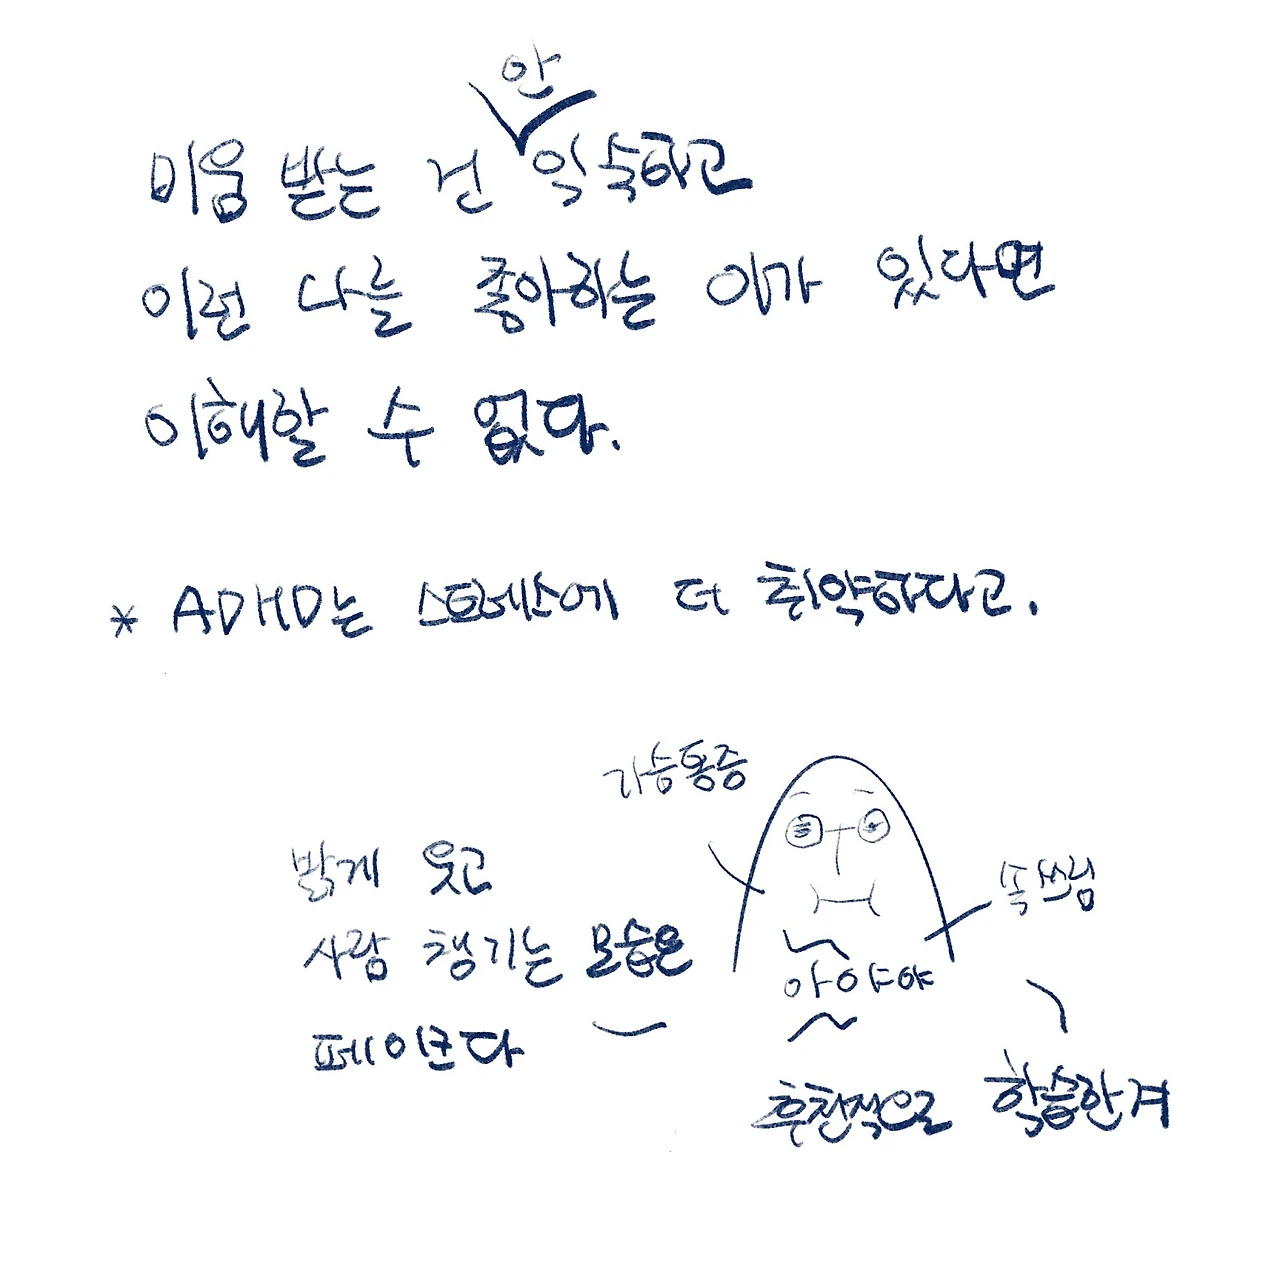 안
미움 받는 건 익숙하고
이런 나를 좋아하는 이가 있다면
이해할 수 없다.
* ADHD는 스트레스에 더 취약하다고.
가슴통증
밝게 웃고
사람 챙기는 모습은
페이크다
속쓰림
아야야
후천적으로 학습한겨